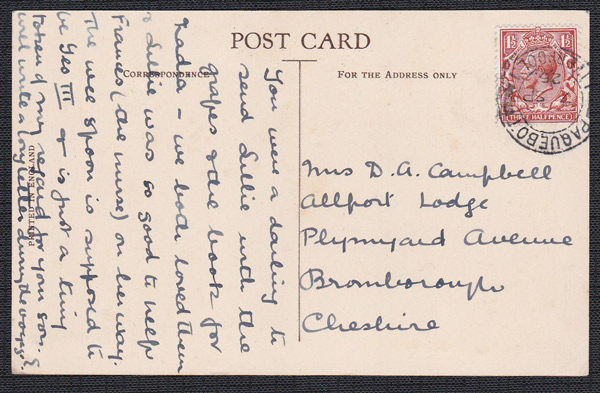 POST CARD
CORRESPONDENCE
FOR THE ADDRESS ONLY
PRINTED IN ENGLAND
You were a darling to
send Lillie with the
grapes & the book for
Nada – we both loved them
& Lillie was so good to help
Frances (the nurse) on her way.
The wee spoon is supposed to
be Geo III & is just a tiny
token of my regard for your son. I
will write a long letter during the voyage.
1½ 1½
THREE HALF PENCE
PAQUEBOT
Mrs D. A. Campbell
Allport Lodge
Plymyard Avenue
Bromborough
Cheshire